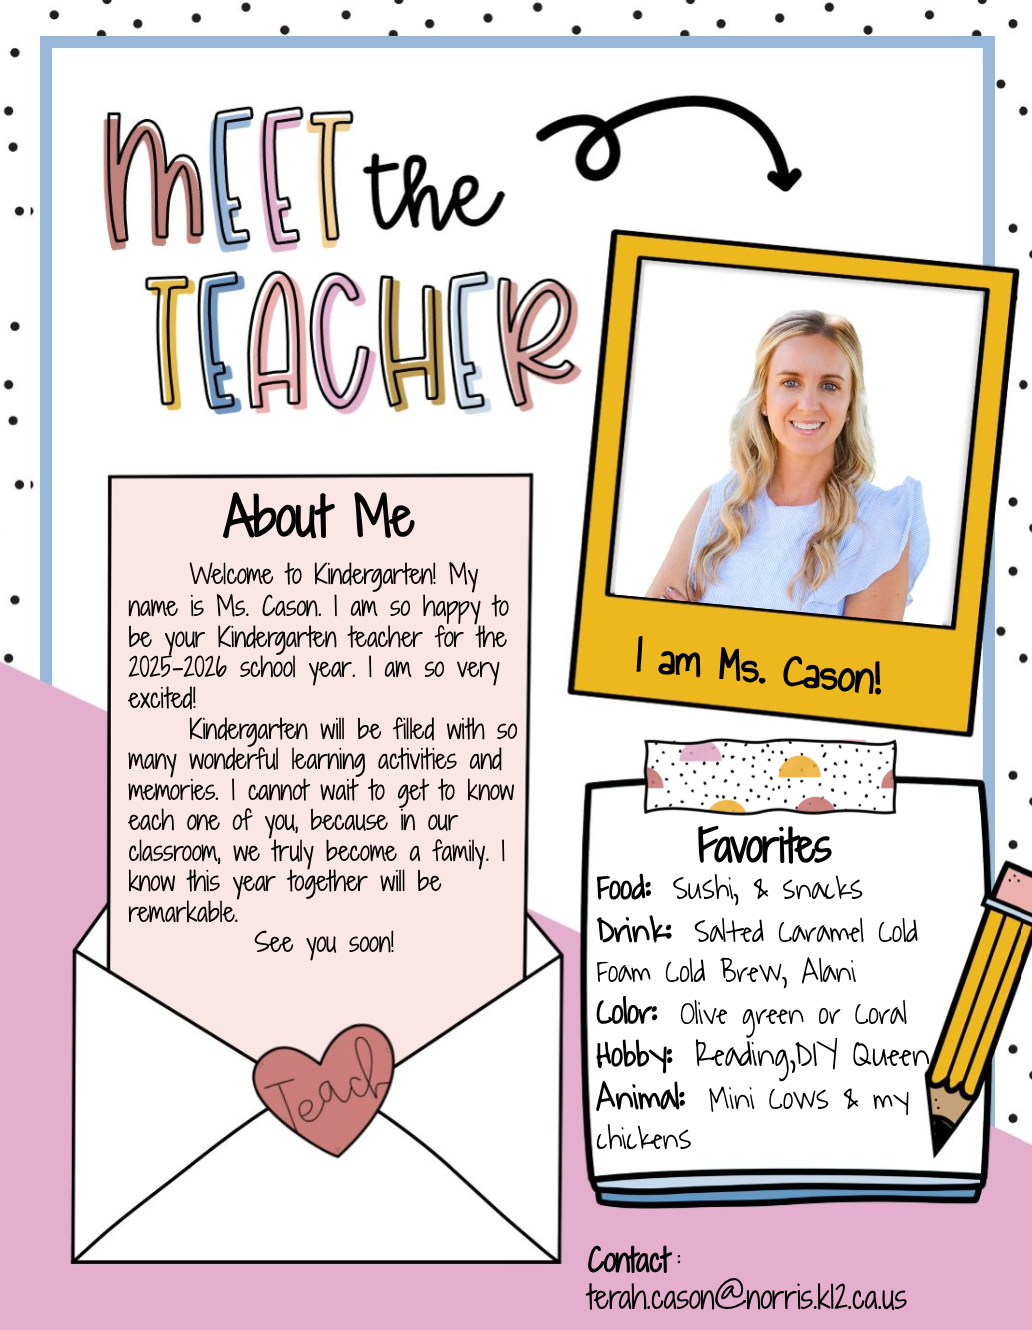 MEET the
TEACHER
About Me
Welcome to Kindergarten! My
name is Ms. Cason. I am so happy to
be your Kindergarten teacher for the
2025-2026 school year. I am so very
excited!
Kindergarten will be filled with so
many wonderful learning activities and
memories. I cannot wait to get to know
each one of you, because in our
classroom, we truly become a family. I
know this year together will be
remarkable.
See you soon!
Teach
I am Ms. Cason!
Favorites
Food: Sushi, & snacks
Drink: Salted Caramel Cold
Foam Cold Brew, Alani
Color: Olive green or Coral
Hobby: Reading,DIY Queen
Animal: Mini Cows & my
chickens
Contact:
terah.cason@norris.k12.ca.us